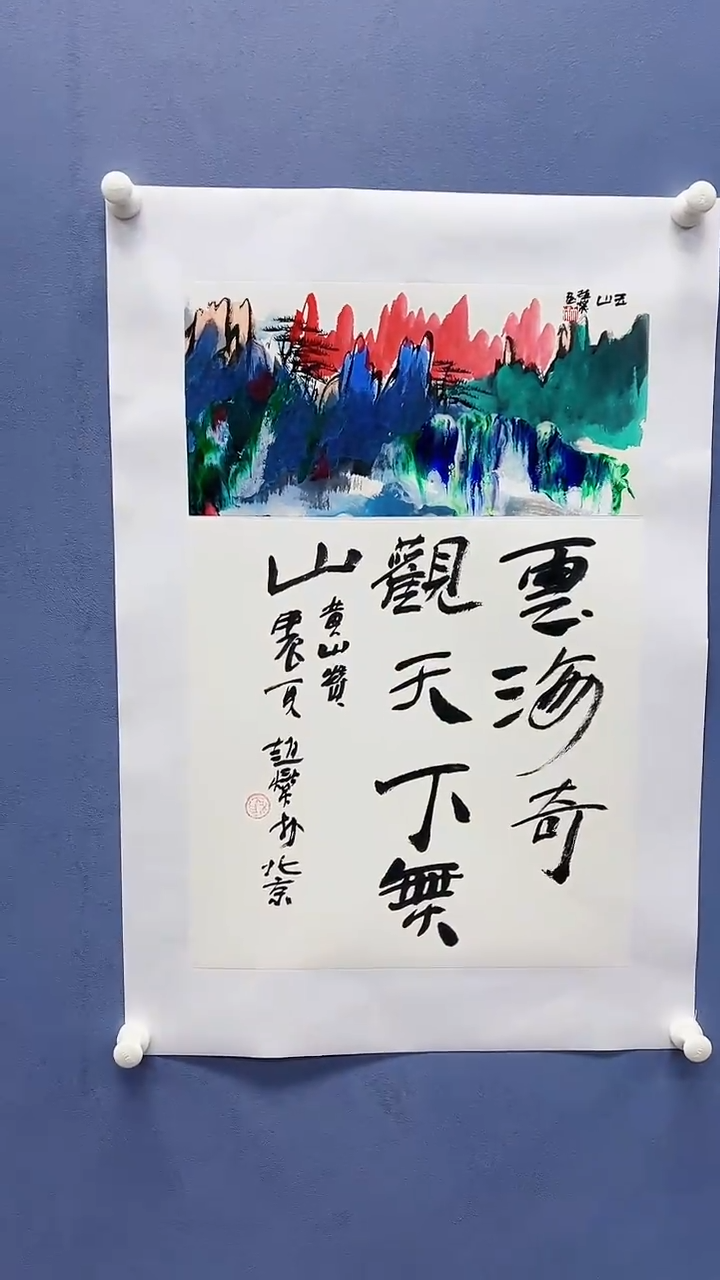 五山
雲海奇
觀天下無
山
黄山贊
甲辰夏趙燦於北京